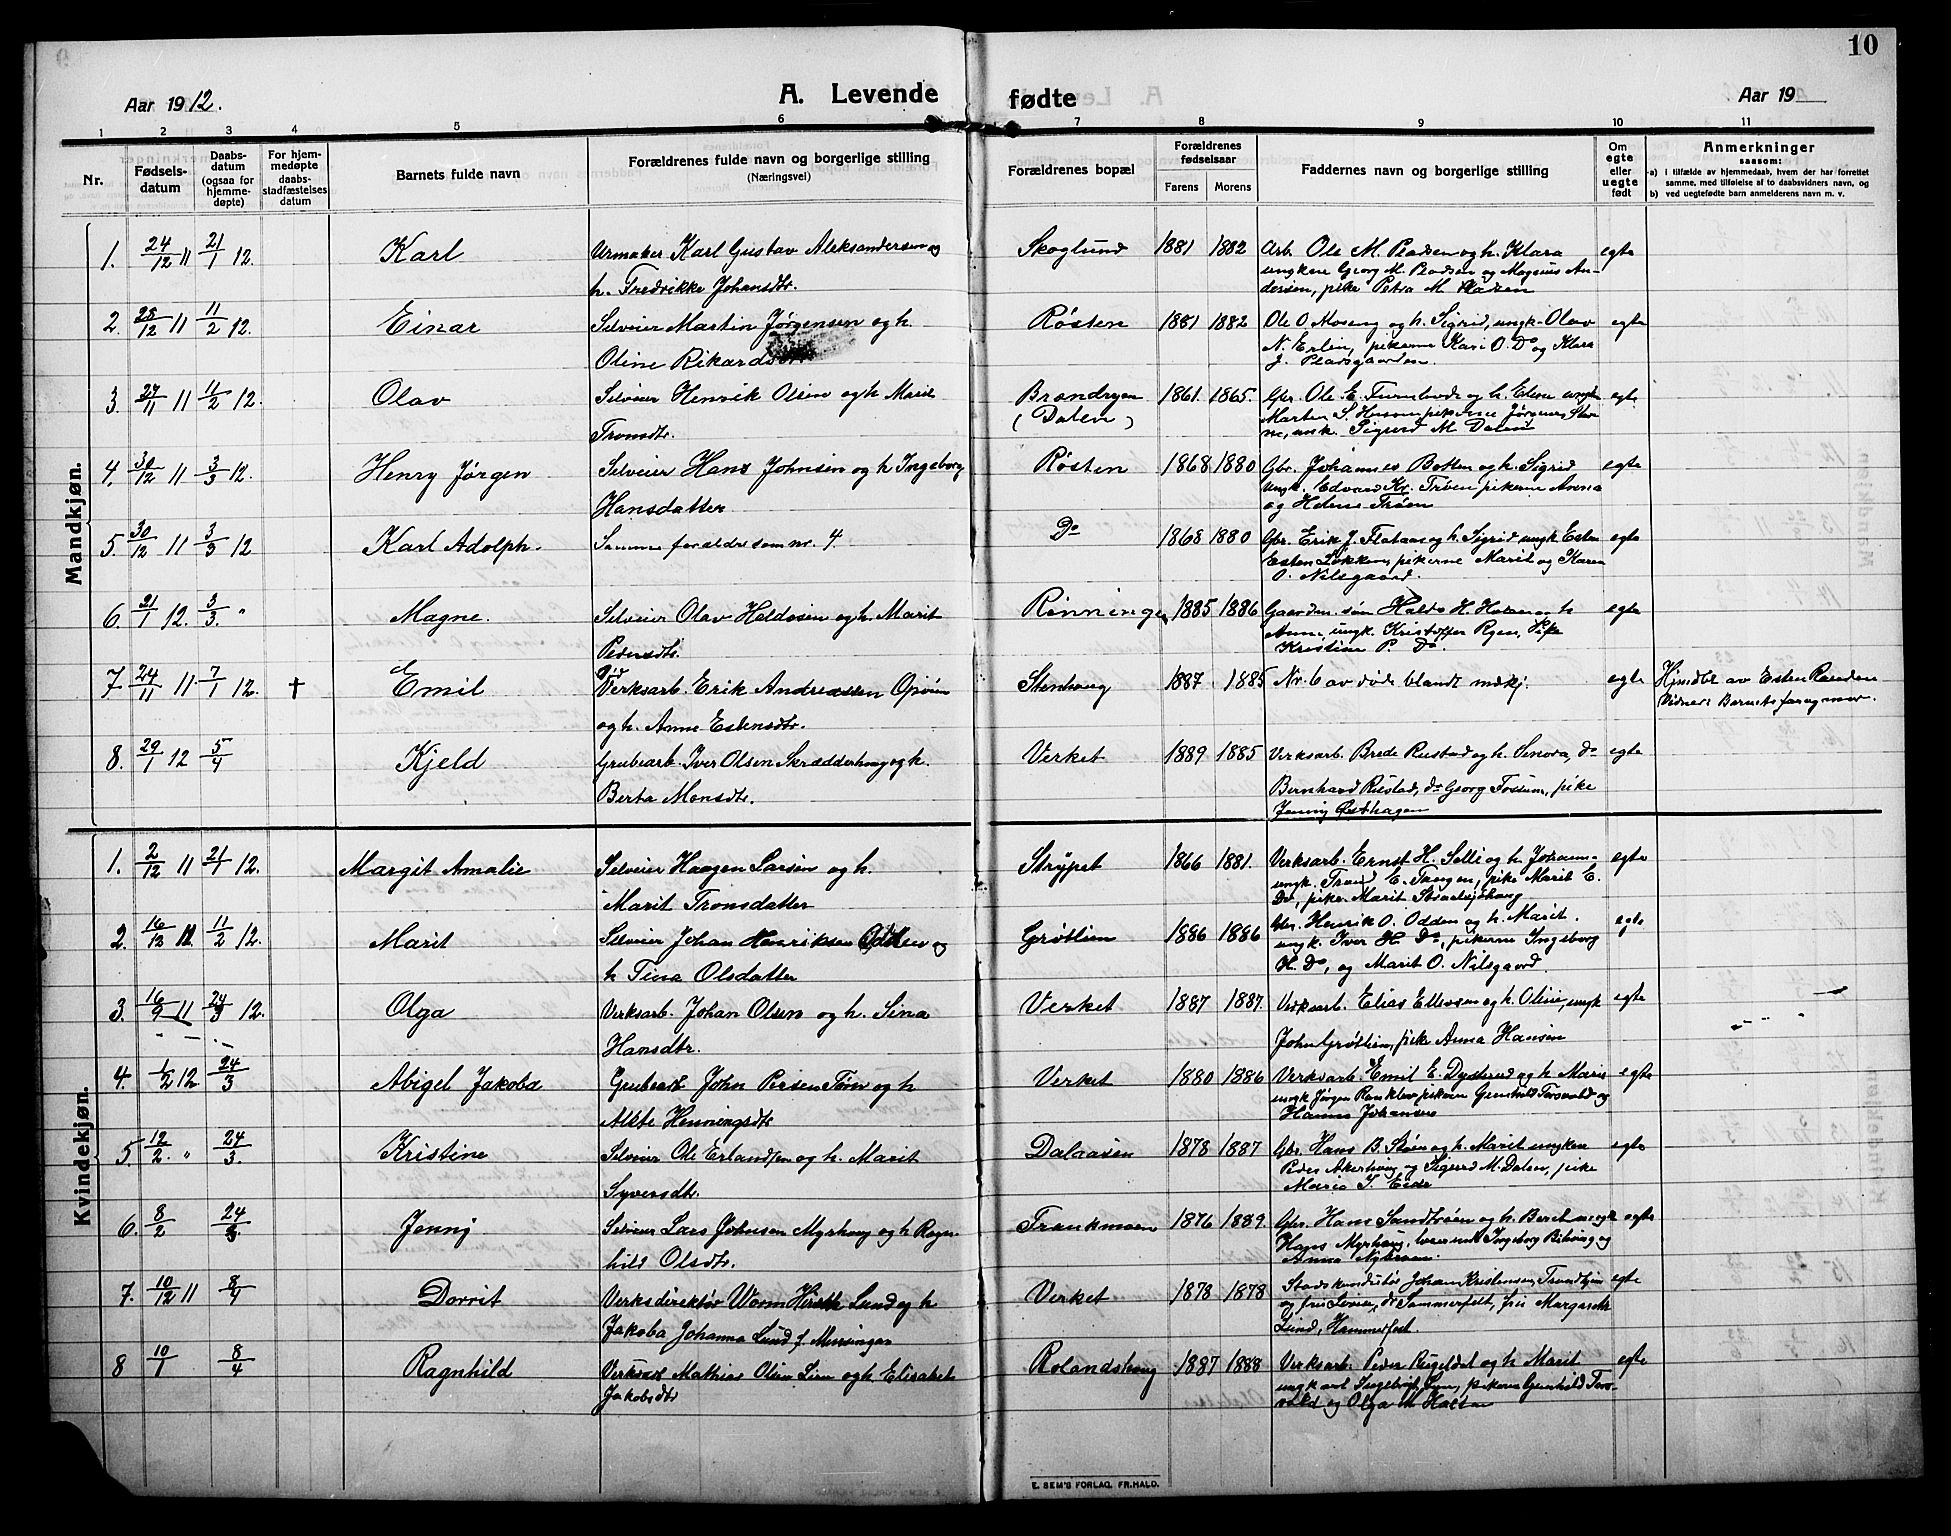 10
Aar 1912.
A. Levende fødte
Aar 19
1 2 3 4 5 6 7 8 9 10 11
Nr.
Fødsels-
datum
Daabs-
datum
(ogsaa for
hjemme-
døpte)
For hjem-
medøpte
daabs-
stadfæstelses
datum
Barnets fulde navn
Forældrenes fulde navn og borgerlige stilling
(Næringsvei)
Forældrenes bopæl
Forældrenes
fødselsaar
Farens Morens
Faddernes navn og borgerlige stilling
Om
egte
eller
uegte
født
Anmerkninger
saasom:
a) i tilfælde av hjemmedaab, hvem der har forrettet
samme, med tilføielse af to daabsvidners navn, og
b) ved uegtefødte barn anmelderens navn m. v.
Mandkjøn.
1. 24/12 11 21/1 12. Karl Urmaker Karl Gustav Aleksandersen og Skoglund 1881 1882 Arb. Ole M. og h. Klara egte
h. Fredrikke Johansdtr.
ungkne Georg M. og Magnus An-
dersen, pike Petra M.
2. 28/12 11 11/2 12. Einar Selveier Martin Jørgensen og h. Røsten 1881 1882 Ole O. Moseng og h. Sigrid, ungk. Olav egte
Oline Rikardsdtr.
N. Erlien, pikerne Kari O. Do og Klara
J.
3. 27/11 11 11/2 12. Olav Selveier Henrik Olsen og h. Marit 1861. 1865. Gbr. Ole E. og h. Elen egte
Tronsdtr. (Dalen)
Sigurd M. Dalen
4. 30/12 11 3/3 12. Henry Jørgen Selveier Hans Johnsen og h Ingeborg Røsten 1868 1880 Gbr. Johannes Botten og h. Sigrid egte
Hansdatter
ungk. Edvard Kr. Trøen pikerne Anna
og Helene Trøen
5. 30/12 11 3/3 12 Karl Adolph. Samme forældre som nr. 4. Do 1868 1880 Gbr. Erik J. Flataas og h. Sigrid ungk Esten egte
Esten Løkken, pikerne Marit og Karen
O. Nilsgaard.
6. 21/1 12. 3/3. " Magne. Selveier Olav Heldosen og h. Marit Rønningen 1885 1886 egte
Pedersdtr.
Anne, ungk. Kristoffer Ryen, Pike
Kristine P. Do.
7 24/11 11 7/1 12. † Emil Verksarb. Erik Andreassen Opøien Stenhaug 1887. 1885 Nr. 6 av døde blandt mdkj. egte Hjmdbt. av Esten
og h. Anne Estensdtr.
Vidner: Barnets far og mor.
8. 29/1 12 5/4 Kjeld Grubearb. Iver Olsen Skrædderhaug og h. Verket 1889 1885 Verksarb. Brede Rustad og h. Senova, do egte
Berta Monsdtr.
Bernhard Rustad, do Georg Fossum, pike
Jenny Østhagen
Kvindekjøn.
1. 2/12 11 21/1 12. Margit Amalie Selveier Haagen Larsen og h. Strypet 1866 1881. Verksarb. Ernst H. Selli og h. Johanna egte
Marit Tronsdatter
ungk. Trond E. Tangen, pike Marit E.
Do, pike Marit
2. 16/12 11. 11/2 12. Marit Selveier Johan Henriksen Odden og Grøtlien 1886 1886 Gbr. Henrik O. Odden og h. Marit. egte
h Tina Olsdatter
ungk. Iver H. Do, pikerne Ingeborg
H. Do, og Marit O. Nilsgaard.
3. 16/9 11 24/3 12. Olga Verksarb. Johan Olsen og h. Sina Verket 1887 1887. Verksarb. Elias Ellevsen og h. Oline, ungk egte
Hansdtr.
John Grøtlien, pike Anna Hansen
4. 1/2 12 24/3 Abigel Jakoba Grubearb John Persen Tøm og h Verket 1880 1886 Verksarb. Emil E. Dysterud og h Marie egte
Henningsdtr
ungk Jørgen pikerne Gunhild Torsvold og
Hanna Johansen
5. 12/2. " 24/3. Kristine Selveier Ole Erlandsen og h. Marit Dalaasen 1878 1887 Gbr. Hans B. Støen og h. Marit ungkne egte
Syversdtr.
Peder Akerhaug og Sigurd M. Dalen, pike
Maria S. Eide
6. 8/2 24/3. Jenny Selveier Lars Johnsen Myrhaug og h Ragn- Frankmoen 1876 1889. Gbr. Hans Sandtrøen og h. Berit ungk egte
hild Olsdtr.
Hans Myrhaug, Ingeborg og
Anna
7. 10/12 11 8/4 Dorrit Verksdirektør Worm Hirsch Lund og h Verket 1878 1878 Stadskonduktør Johan Kristensen, Trondhjem egte
Jakoba Johanna Lund f.
og fru Lovise, dr Sommerfelt, fru Margarethe
Lund, Hammerfest.
8 10/1 8/4 Ragnhild Verksarb Mathias Olsen Lien og h Elisabet Rolandshaug 1887 1888 Verksarb. Peder Rugeldal og h Marit egte
Jakobsdtr
ungkarl Lien, pikerne Gunhild Tors-
vold og Olga M Halten
E. SEM'S FORLAG, FR.HALD.